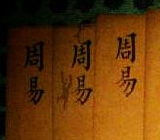 周易
周易
周易